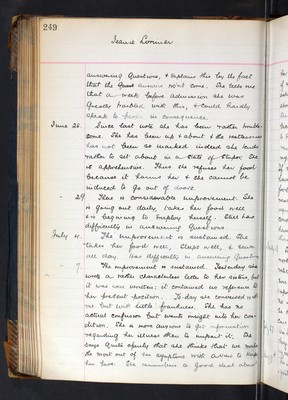 249
Jeanie Lorimer
answering questions, & explains this by the fact
that the answers won't come. She tells me
that a week before admission she was
greatly troubled with this, & could hardly
speak to in consequence.
June 26. Since last note she has been rather trouble-
some. She has been up & about & the restlessness
has not been so marked indeed she tends
rather to sit about in a state of stupor. She
is apprehensive. Then she refuses her food
because it harms her & she cannot be
induced to go out of doors.
- 29 There is considerable improvement. She
is going out daily, takes her food well
& is beginning to employ herself. Still has
difficulty in answering questions
July 4. The improvement is sustained. She
takes her food well, sleeps well, & sews
all day. Has difficulty in answering questions
- 7. The improvement is sustained. Yesterday she
wrote a rather characterless letter to her sister, but
it was well written; it contained no reference to
her present position. To-day she conversed with
me but with little frankness. She has no
actual confusion but wants insight into her con-
dition. She is more anxious to get information
regarding her illness than to impart it. She
says quite openly that she thinks that we make
the most out of her symptoms with a view to keep
her here. She remembers a good deal about